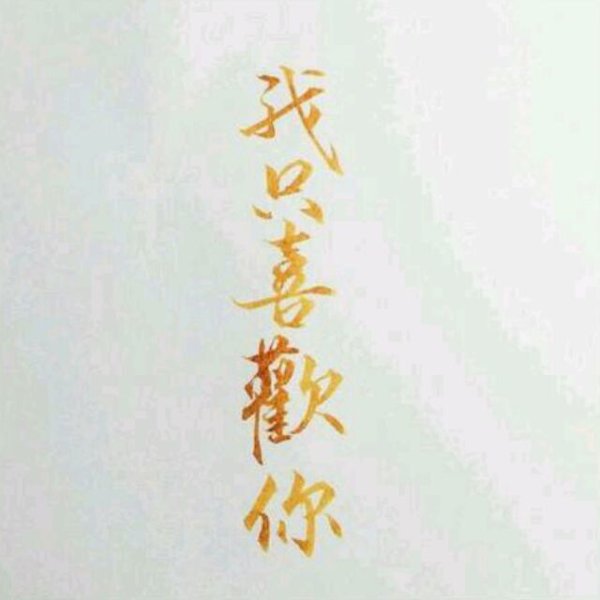 我只喜歡你